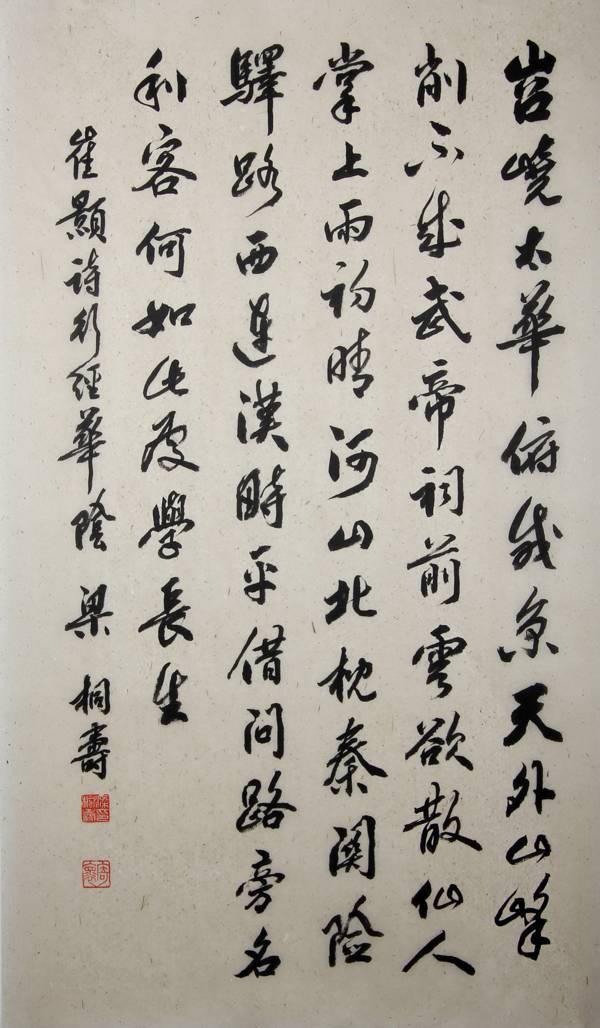 岧嶢太華俯咸京天外山峰
削不成武帝祠前雲欲散仙人
掌上雨初晴河山北枕秦關險
驛路西連漢時平借問路旁名
利客何如此處學長生
崔顥詩行經華陰 梁桐壽